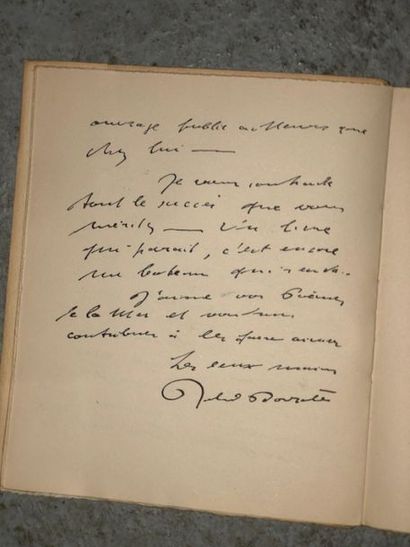 ouvrage publié ailleurs que
chez lui —
Je vous souhaite
tout le succès que vous
méritez — Un livre
qui paraît, c'est encore
un bateau qui s'en va.
J'aime vos Poèmes
de la Mer et voudrais
contribuer à les faire aimer
Les deux mains